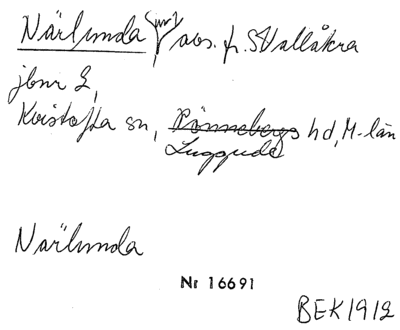 Närlunda avs. fr. S Vallåkra
jbnr 2,
Kvistofta sn, Rönnebergs hd, M-län
Luggude
Närlunda
Nr 16691
BEK 1912